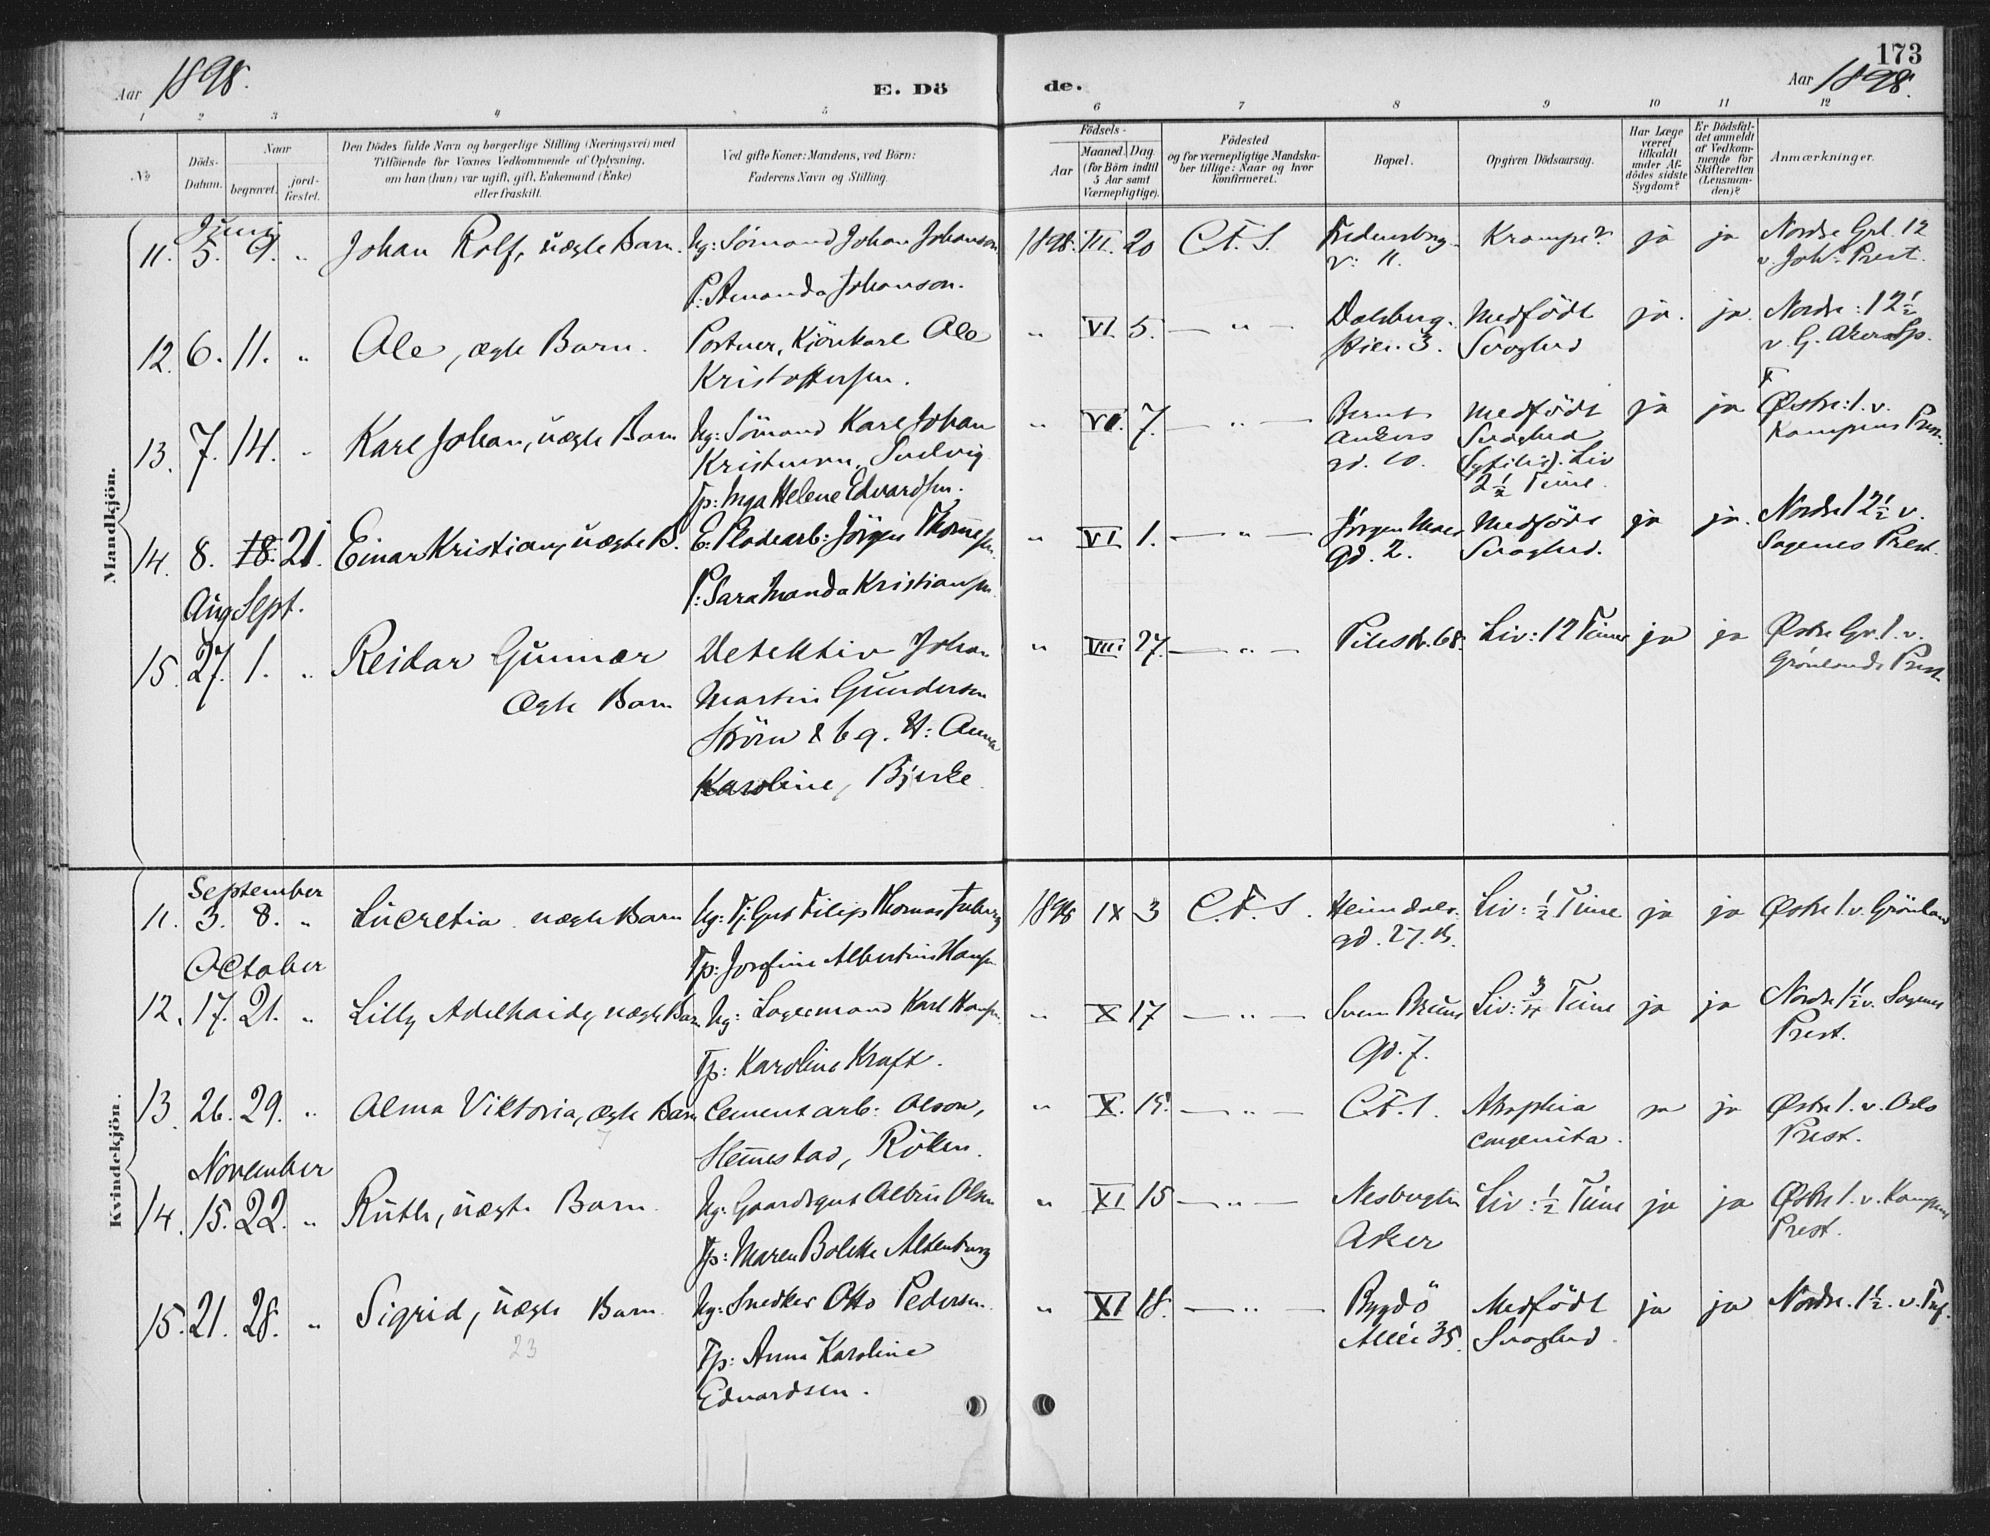 173
Aar 1898.
E. Dö
de.
Aar 1898.
1 2 3 4 5 6 7 8 9 10 11 12
No
Döds-
Datum.
Naar
begravet.
jord-
fæstet.
Den Dödes fulde Navn og borgerlige Stilling (Næringsvei) med
Tilföiende for Voxnes Vedkommende af Oplysning,
om han (hun) var ugift, gift, Enkemand (Enke)
eller fraskilt.
Ved gifte Koner: Mandens, ved Börn:
Faderens Navn og Stilling.
Födsels-
Aar
Maaned. Dag.
(for Börn indtil
5 Aar samt
Værnepligtige).
Födested
og for værnepligtige Mandska-
ber tillige: Naar og hvor
konfirmeret.
Bopæl.
Opgiven Dödsaarsag.
Har Læge
været
tilkaldt
under Af-
dödes sidste
Sygdom?
Er Dödsfal-
det anmeldt
af Vedkom-
mende for
Skifteretten
(Lensman-
den)?
Anmærkninger.
Mandkjön.
Juni
11. 5. 9. " Johan Rolf, uægte Barn. Ug: Sömand Johan Johanson 1898. III. 20 C.F.S. Fredensborg- Krampe? ja ja Nordre Grl. 12
P: Amanda Johanson. v: 11. v. Joh: Prest.
12. 6. 11. " Ole, ægte Barn. Portner, Kjörekarl Ole " VI. 5. — " — Dalsberg- Medfödt ja. ja. Nordre: 12½
Kristoffersen. stien. 3. Svaghed v. G. Akers Sp.
13. 7. 14. " Karl Johan, uægte Barn Ug: Sömand Karl Johan " VI. 7. — " — Bernt Medfödt ja ja Østre: 1. v.
Ankers Svaghed Kampens Prest.
gd. 10. (Syfilis). Liv
Tp: Inga Helene Edvardsen. 2½ Time.
14. 8. 18. 21. Einar Kristian, uægte B. E: Pladearb: Jörgen Thomesen " VI 1. — " — Jörgen Moes Medfödt ja ja. Nordre 12½ v.
P: Sara Manda Kristiansen. gd. 2. Svaghed. Sagenes Prest.
Aug Sept.
15. 27. 1. " Reidar Gunnar Detektiv Johan " VIII 27. — " — Pilestr. 68. Liv: 12 Timer ja ja Østre Gr. 1. v.
Ægte Barn Martin Gundersen Grönlands Prest
Ström & bg. H: Anna
Karoline, Bjerke.
Kvindekjön.
September
11. 3. 8. " Lucretia uægte Barn Ug: Tj: Gut Filip Thomas 1898 IX 3 C.F.S. Heimdals- Liv: ½ Time ja ja Østre 1. v. Grönland
Tp: Josefine Albertine Hansen gd. 27. B.
October
12. 17. 21. " Lilly Adelhaide, uægte Barn Ug: Lagermand Karl Hansen. " X 17 — " — Svenn Bruns Liv: ¾ Time ja ja Nordre 1½ v. Sagenes
Tp: Karoline Kraft. gd. 7. Prest.
13. 26. 29. " Alma Viktoria, ægte Barn Cementarb: Olson, " X. 15. — " — C.F.S. Atrophia ja Østre 1. v. Oslo
Hennestad, Röken. congenita. Prest.
November
14. 15. 22. " Ruth, uægte Barn. Ug: Gaardsgut Albin Olsen " XI 15 — " — Liv: ½ Time ja ja Østre 1. v. Kampens
Tp: Maren Bolette Altenburg Aker Prest.
15. 21. 28. " Sigrid, uægte Barn Ug: Snedker Otto Pedersen. " XI 18. — " — Bygdö Medfödt ja ja Nordre. 1½. v.
23 Tp: Anna Karoline Allée 35. Svaghed.
Edvardsen.